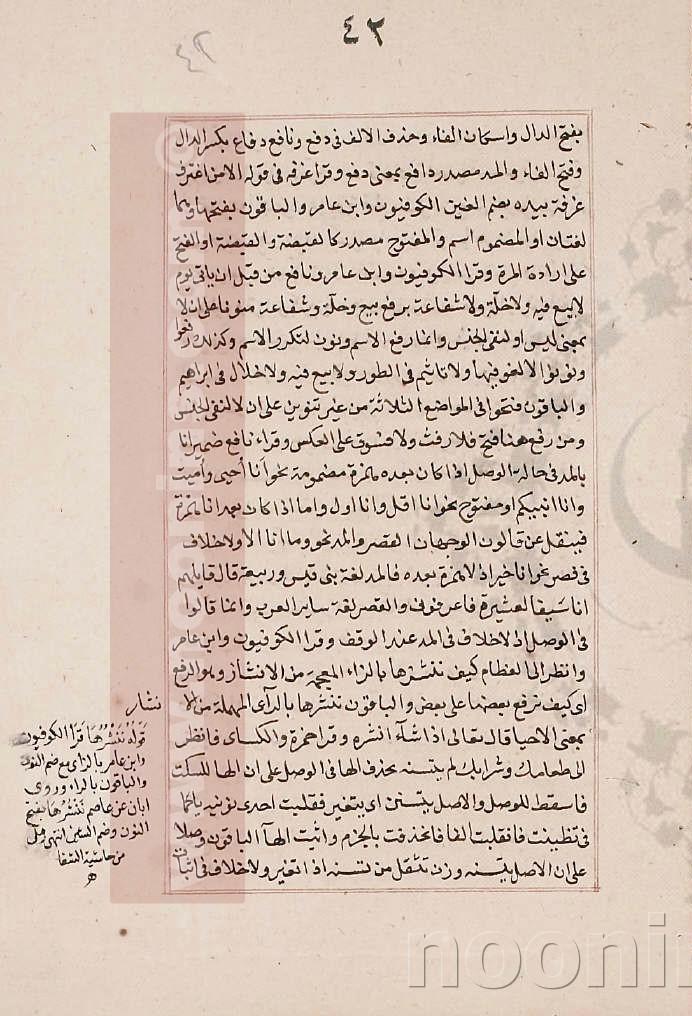 ٤٢
٤٢
بفتح الدال واسكان الفاء وحذف الالف في دفع ونافع دفاع بكسر الدال
وفتح الفاء والمد مصدر دافع بمعنى دفع وقرا غرفه في قوله الا من اغترف
غرفة بيده بضم الغين الكوفيون وابن عامر والباقون بفتحها وهما
لغتان او المضموم اسم والمفتوح مصدر كالقبضة والقبضة او الفتح
على ارادة المرة وقرا الكوفيون وابن عامر ونافع من قبل ان ياتي يوم
لا بيع فيه ولا خلة ولا شفاعة برفع بيع وخلة وشفاعة منونا على ان لا
بمعنى ليس او لنفي الجنس وانما رفع الاسم ونون لتكرر الاسم وكذلك رفعوا
ونونوا لا لغو فيها ولا تاثيم في الطور ولا بيع فيه ولا خلال في ابراهيم
والباقون فتحوا في المواضع الثلاثة من غير تنوين على ان لا لنفي الجنس
ومن رفع هنا فتح فلا رفث ولا فسوق على العكس وقراء نافع ضمير انا
بالمد في حالة الوصل اذا كان بعده همزة مضمومة نحو انا أحيى وأميت
وانا انبيكم او مفتوح نحو انا اقل وانا اول واما اذا كان بعد انا همزة
فينقل عن قالون الوجهان القصر والمد نحو وما انا الا ولا خلاف
في قصر نحو انا خير اذ لا همزة بعده فالمد لغة بني قيس وربيعة قال قايلهم
انا سيف العشيرة فاعرفوني والقصر لغة ساير العرب وانما قالوا
في الوصل اذ لا خلاف في المد عند الوقف وقرا الكوفيون وابن عامر
وانظر الى العظام كيف ننشزها بالزاء المعجمة من الانشاز وهو الرفع
اي كيف نرفع بعضها على بعض والباقون ننشرها بالرآى المهملة من الا
نشار
بمعنى الاحيا قال تعالى اذا شآء انشره وقرا حمزة والكساى فانظر
الى طعامك وشرابك لم يتسنه بحذف الها في الوصل على ان الها للسكت
فاسقط للوصل والاصل يتسنن اى يتغير فقلبت احدى نونيه يا كما
في تظنيت فانقلبت الفا فانحذفت بالجزم واثبت الهآ الباقون وصلا
على ان الاصل يتسنه وزن تفعل من تسنه اذا تغير ولا خلاف في اثبات
قوله ننشزها قرا الكوفيون
وابن عامر بالزاى مع ضم النون
والباقون بالراء وروى
ابان عن عاصم ننشرها بفتح
النون وضم الشين انتهى
من حاشية الشفا
noonin